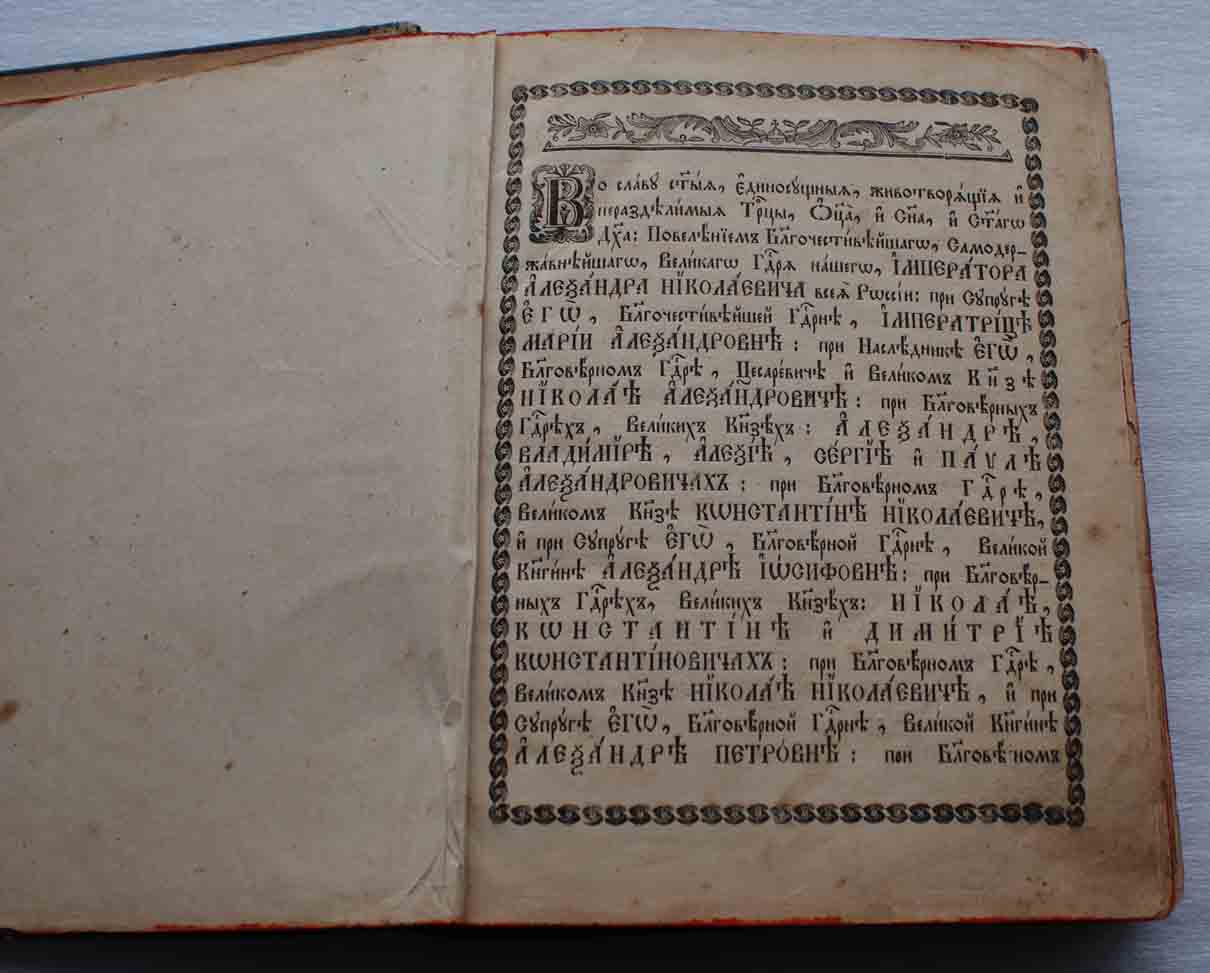 Во сла́вꙋ ст҃ы́ѧ, є҆диносꙋ́щныѧ, животворѧ́щїѧ и҆
нераздѣли́мыѧ Трⷪ҇цы, Ѻ҆ц҃а̀, и҆ Сн҃а, и҆ Ст҃а́гѡ
Дх҃а: Повелѣ́нїемъ Блг҃очести́вѣйшагѡ, Самодер-
жа́внѣйшагѡ, Вели́кагѡ Гдⷭ҇рѧ на́шегѡ, І҆МПЕРА́ТОРА
А҆ЛЕѮА́НДРА НІКОЛА́ЕВИЧА всеѧ̀ Рѡссі́и: при Сꙋпрꙋ́гѣ
Є҆ГѠ̀, Блг҃очести́вѣйшей Гдⷭ҇рнѣ, І҆МПЕРАТРІ́ЦѢ
МАРІ́И А҆ЛЕѮА́НДРОВНѢ: при Наслѣ́дникѣ Є҆гѡ̀,
Блг҃овѣ́рномъ Гдⷭ҇рѣ, Цесаре́вичѣ и҆ Вели́комъ Кн҃зѣ
НІКОЛА́Ѣ А҆ЛЕѮА́НДРОВИЧѢ: при Блг҃овѣ́рныхъ
Гдⷭ҇рѣхъ, Вели́кихъ Кн҃зѣхъ: А҆ЛЕѮА́НДРѢ,
ВЛАДИ́МІРѢ, А҆ЛЕѮІ́Ѣ, СЕ́РГІѢ и҆ ПА́ѴЛѢ
А҆ЛЕѮА́НДРОВИЧАХЪ: при Блг҃овѣ́рномъ Гдⷭ҇рѣ,
Вели́комъ Кн҃зѣ КѠНСТАНТІ́НѢ НІКОЛА́ЕВИЧѢ,
и҆ при Сꙋпрꙋ́гѣ Є҆ГѠ̀, Блг҃овѣ́рной Гдⷭ҇рнѣ, Вели́кой
Кн҃ги́нѣ А҆ЛЕѮА́НДРѢ І҆Ѡ́СИФОВНѢ: при Блг҃овѣ́р-
ныхъ Гдⷭ҇рѣхъ, Вели́кихъ Кн҃зѣхъ: НІКОЛА́Ѣ,
КѠНСТАНТІ́НѢ и҆ ДИМИ́ТРІѢ
КѠНСТАНТІ́НОВИЧАХЪ: при Блг҃овѣ́рномъ Гдⷭ҇рѣ,
Вели́комъ Кн҃зѣ НІКОЛА́Ѣ НІКОЛА́ЕВИЧѢ, и҆ при
Сꙋпрꙋ́гѣ Є҆ГѠ̀, Блг҃овѣ́рной Гдⷭ҇рнѣ, Вели́кой Кн҃ги́нѣ
А҆ЛЕѮА́НДРѢ ПЕТРО́ВНѢ: при Блг҃овѣ́рномъ